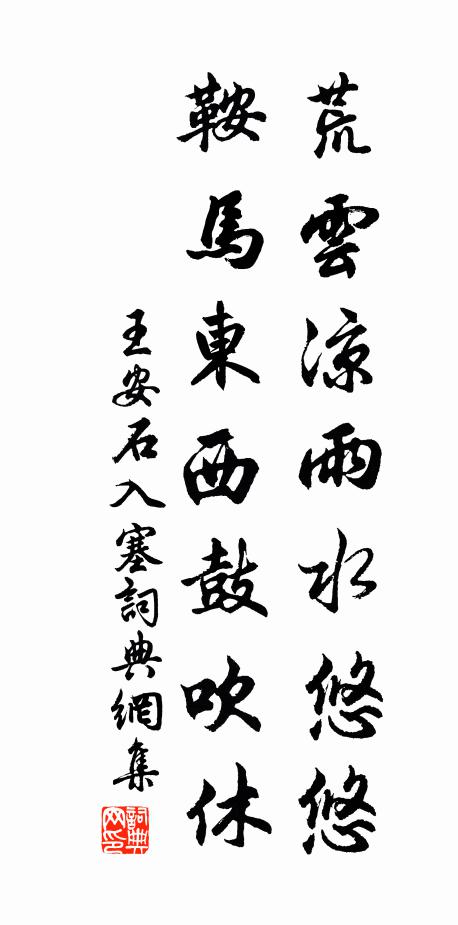 荒雲涼雨水悠悠
鞍馬東西鼓吹休
王安石入塞詞典網集
詞典網印